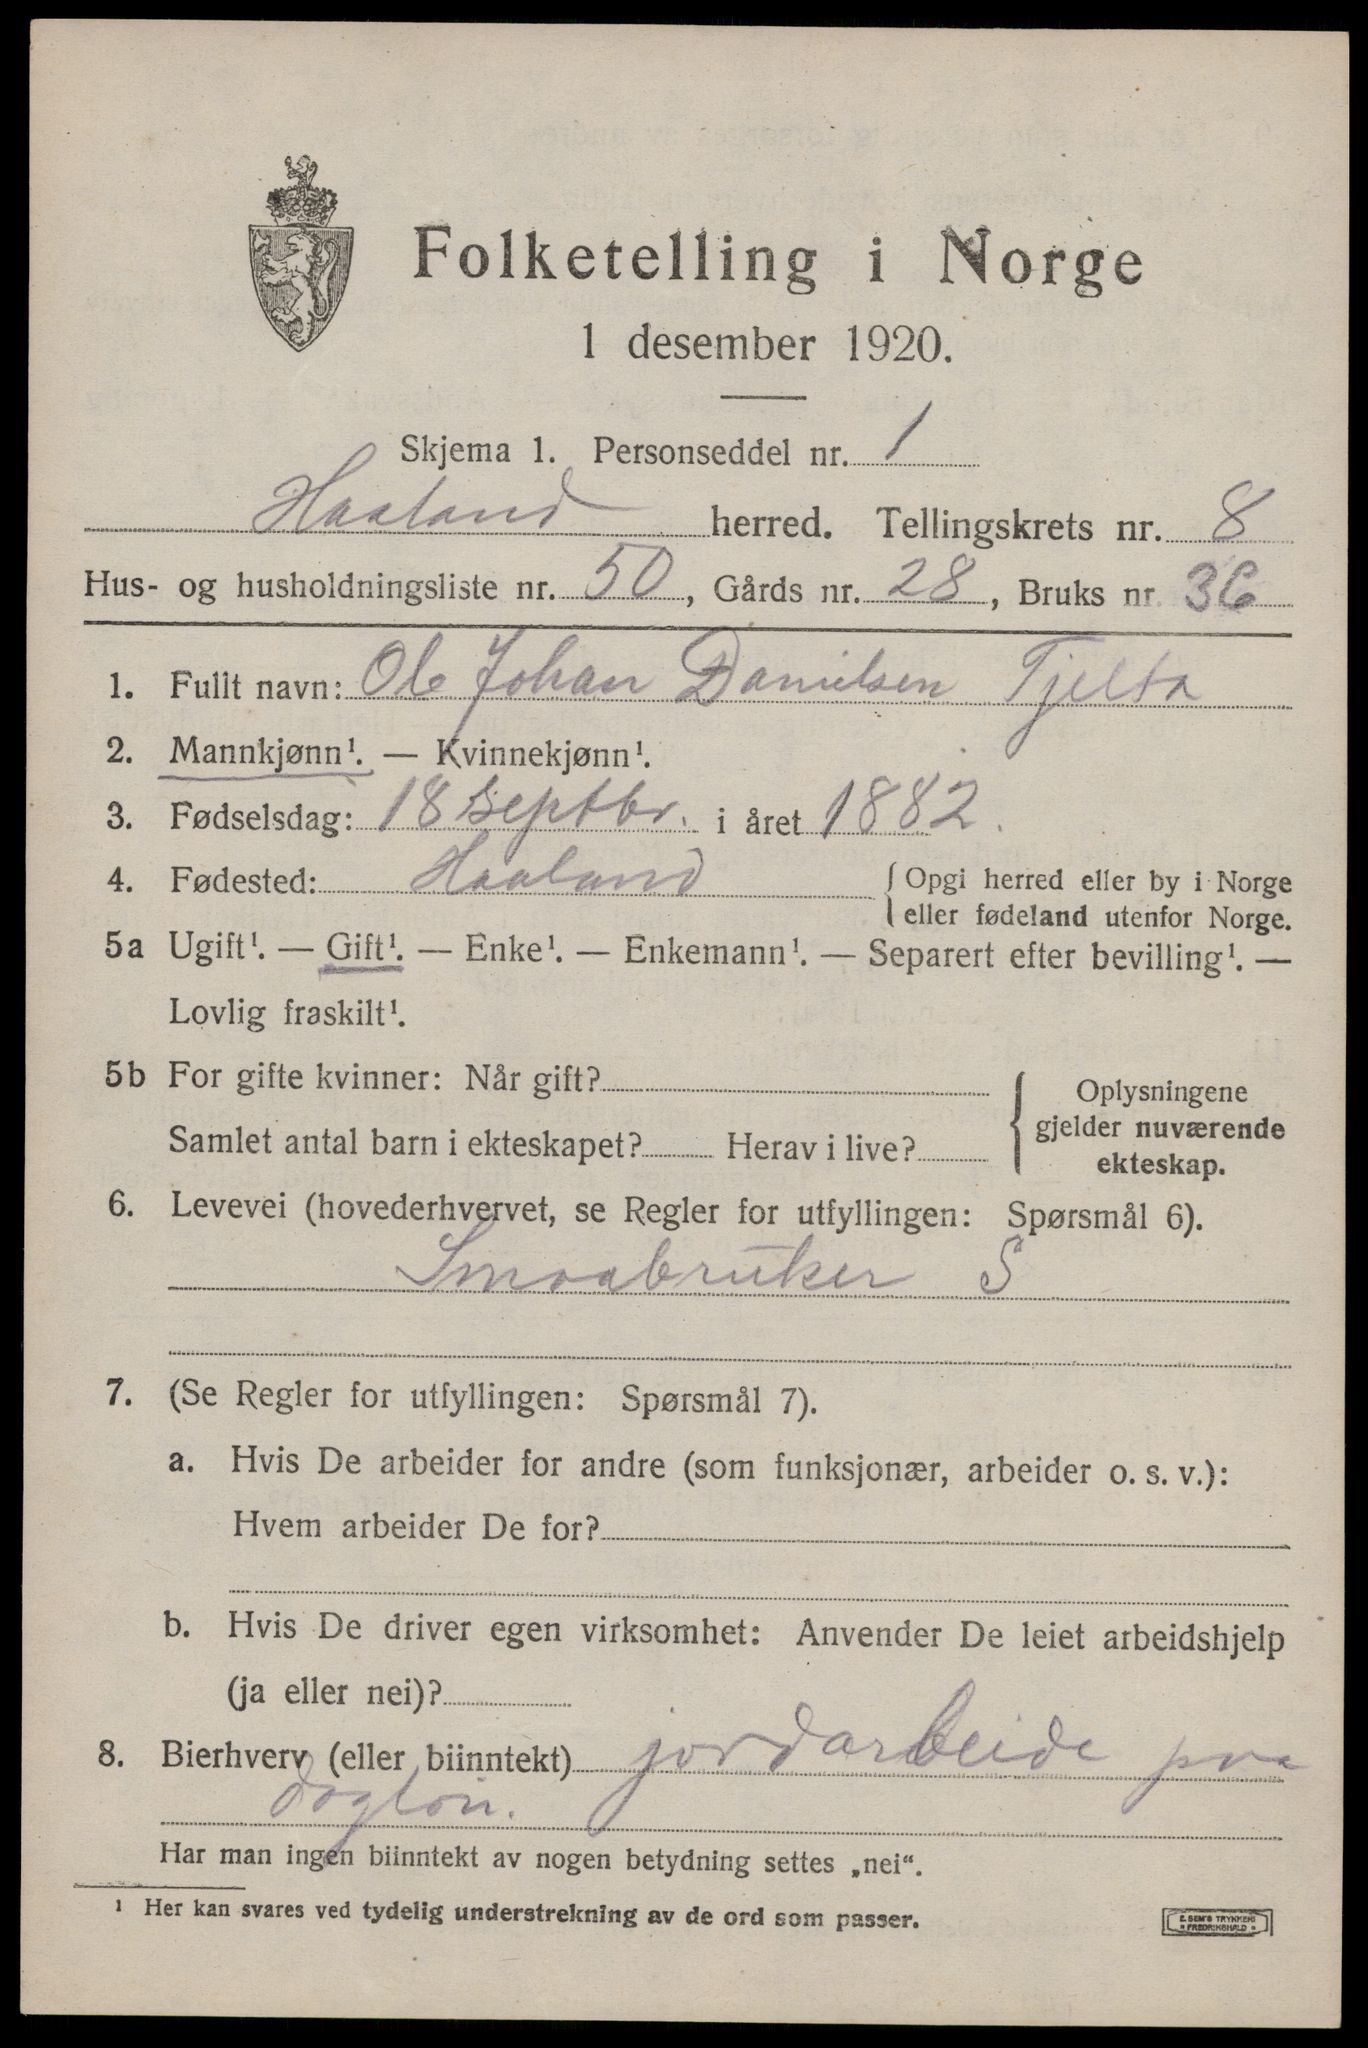 Folketelling i Norge
1 desember 1920.
Skjema 1. Personseddel nr. 1
Haaland herred. Tellingskrets nr. 8
Hus- og husholdningsliste nr. 50, Gårds nr. 28, Bruks nr. 36
1. Fullt navn: Ole Johan Danielsen Tjelta
2. Mannkjønn¹. — Kvinnekjønn¹.
3. Fødselsdag: 18 septbr. i året 1882.
4. Fødested: Haaland { Opgi herred eller by i Norge
eller fødeland utenfor Norge.
5a Ugift¹. — Gift¹. — Enke¹. — Enkemann¹. — Separert efter bevilling¹. —
Lovlig fraskilt¹.
5b For gifte kvinner: Når gift?
Samlet antal barn i ekteskapet? Herav i live?
{ Oplysningene
gjelder nuværende
ekteskap.
6. Levevei (hovederhvervet, se Regler for utfyllingen: Spørsmål 6).
Smaabruker S
7. (Se Regler for utfyllingen: Spørsmål 7).
a. Hvis De arbeider for andre (som funksjonær, arbeider o. s. v.):
Hvem arbeider De for?
b. Hvis De driver egen virksomhet: Anvender De leiet arbeidshjelp
(ja eller nei)?
8. Bierhverv (eller biinntekt) jordarbeide paa
dagløn.
Har man ingen biinntekt av nogen betydning settes „nei“.
¹ Her kan svares ved tydelig understrekning av de ord som passer.
E. SEM'S TRYKKERI
FREDRIKSHALD